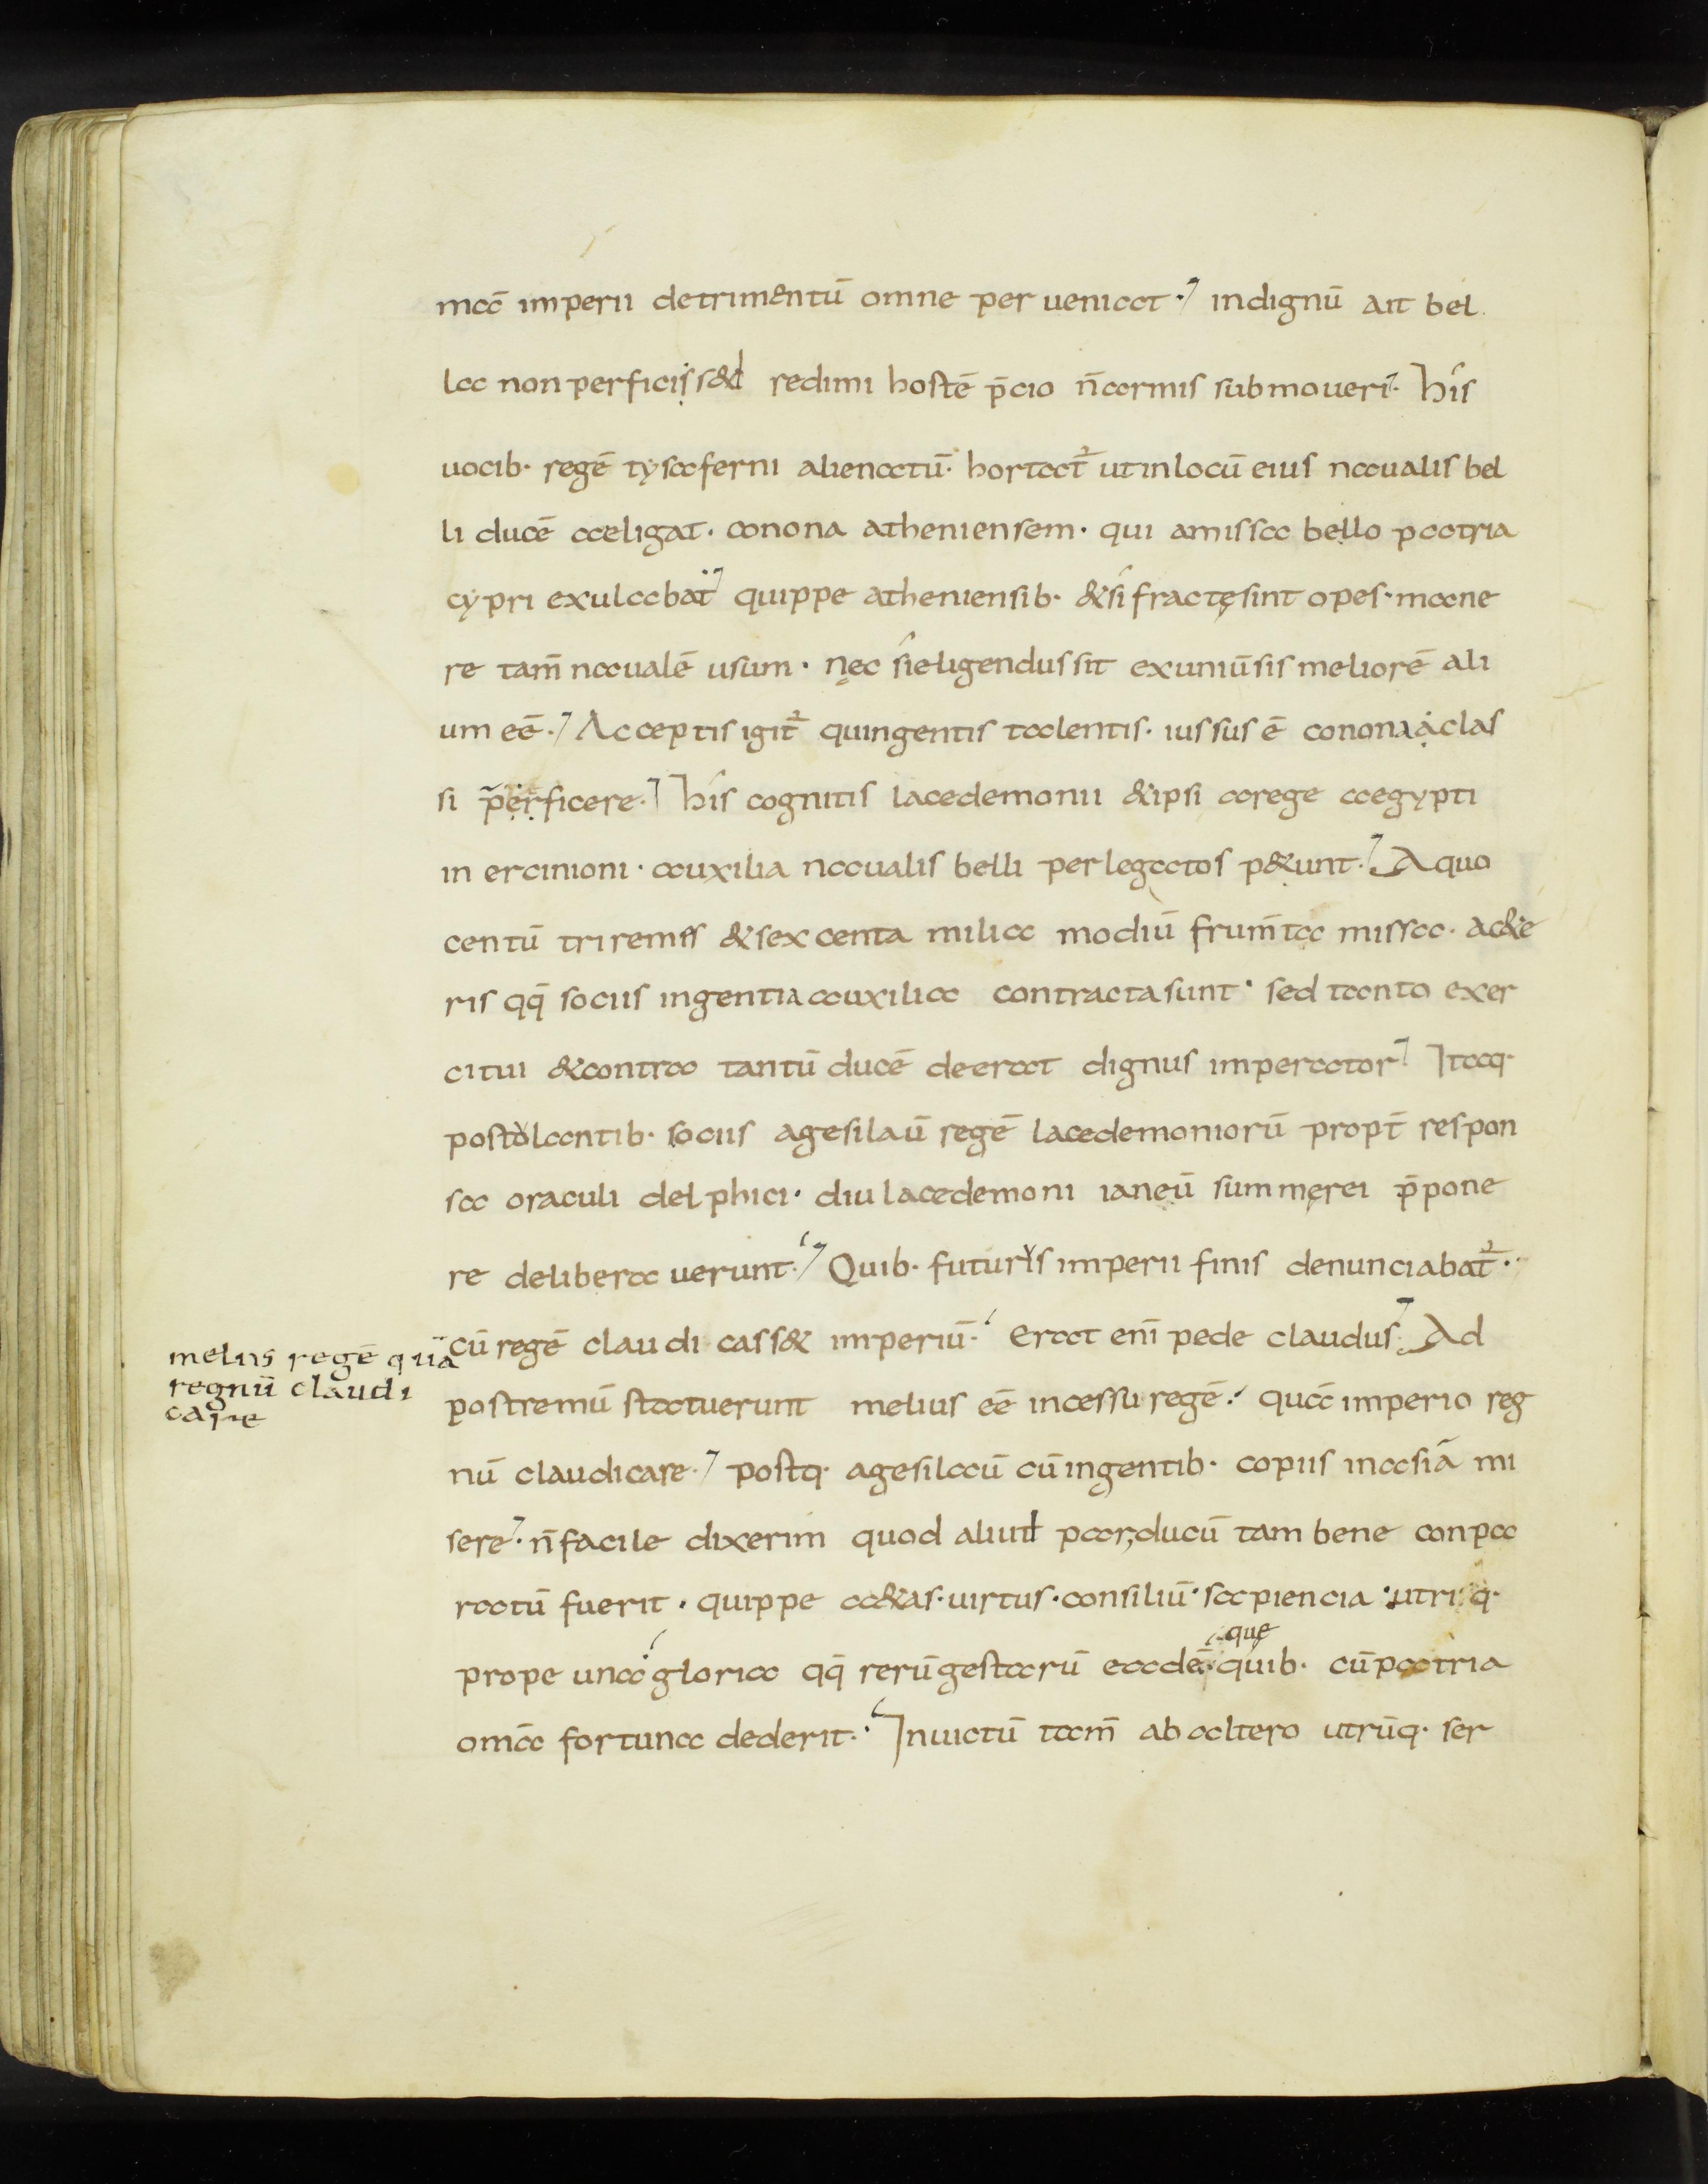 mā imperii detrimentū omne per ueniat· indignū ait bel
la non perficis sed redimi hostē p̄cio n̄ armis submoueri· his
uocib· regē tysaferni alienatū· hortat̄ ut in locū eius naualis bel
li ducē aeligat· conona atheniensem· qui amissa bello patria
cypri exulabat quippe atheniensib· & si fractę sint opes· mane
re tam̄ naualē usum· nęc si eligendus sit ex uniūsis meliorē ali
um eē· Acceptis igit̄ quingentis talentis· iussus ē conona clas
si p̄erficere· his cognitis lacedemonii & ipsi a rege aegypti
in ercinioni· auxilia naualis belli per legatos p&unt· A quo
centū triremes & sexcenta milia modiū frum̄ta missa· a c&e
ris qq̄ sociis ingentia auxilia contracta sunt· sed tanto exer
citui & contra tantū ducē deerat dignus imperator Itaq·
postolantib· sociis agesilaū regē lacedemoniorū propt̄ respon
sa oraculi delphici· diu lacedemoni ianeū summęrei p̄pone
re deliberauerunt· Quib· futuris imperii finis denunciabat̄·
cū regē claudicass& imperiū· Erat eni pede claudus· Ad
postremū statuerunt melius eē incessu regē· quā imperio reg
nū claudicare· postq· agesilaū cū ingentib· copiis in asiā mi
sere· n̄ facile dixerim quod aliud par ducū tam bene conpa
ratū fuerit· quippe a&as· uirtus· consiliū· sapiencia· utriq·
prope una gloria qq̄ rerū gestarū eadē· quib· cū patria
que
omā fortuna dederit· Inuictū tam̄ ab altero utrūq· ser
melius regē quā
regnū claudi
care